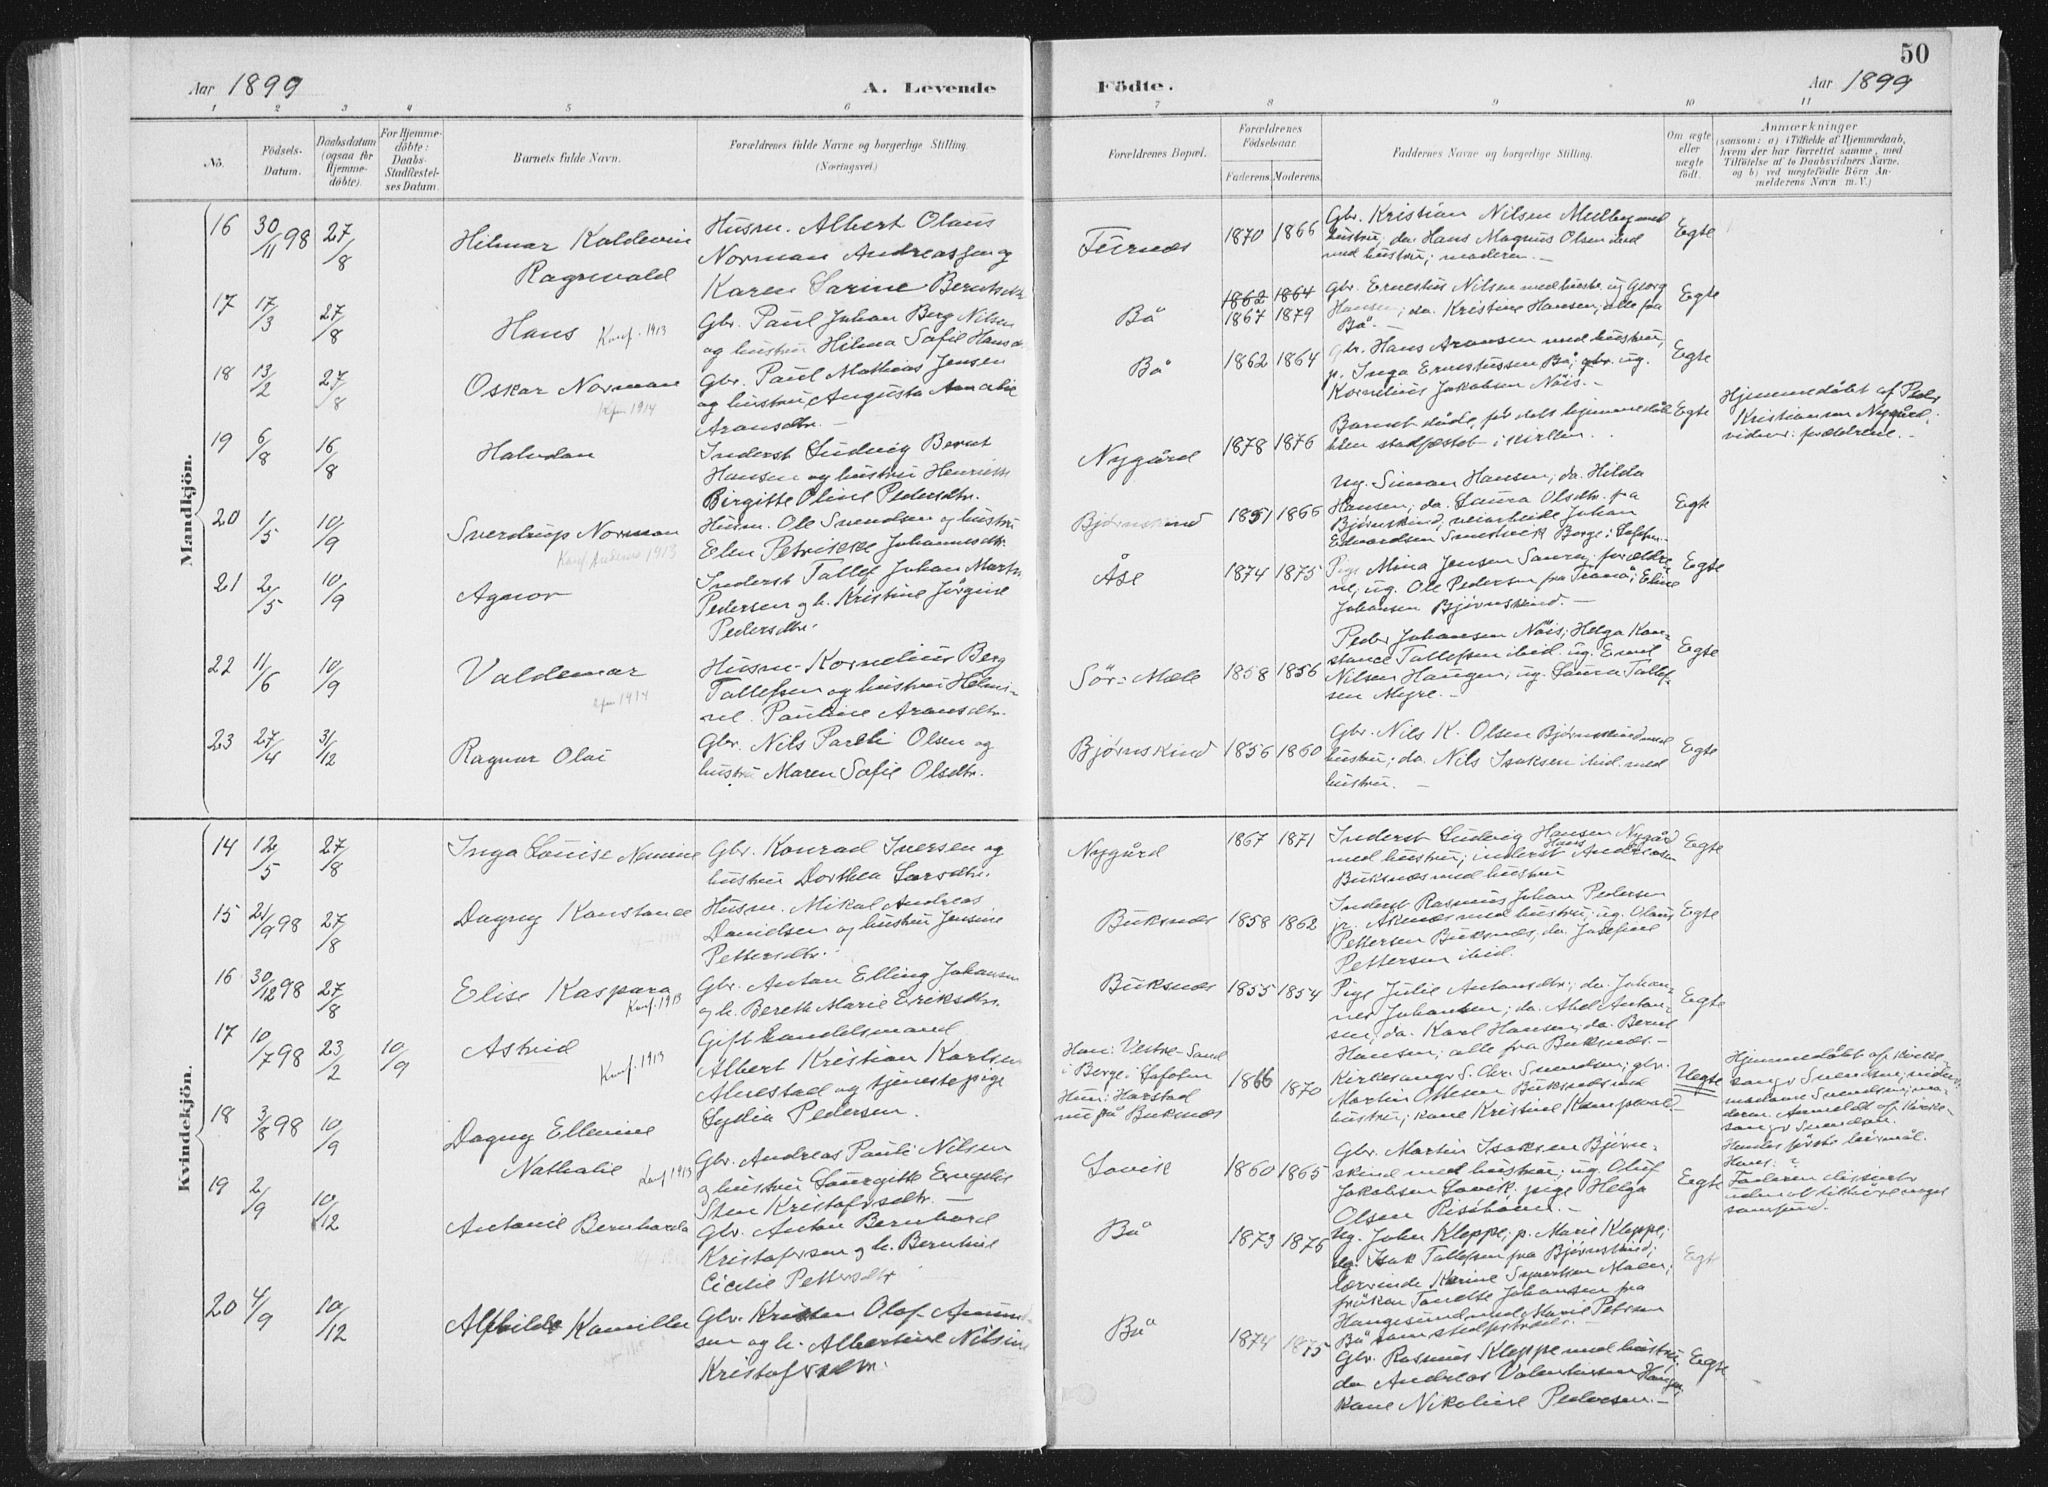 50
Aar 1899
A. Levende
Födte.
Aar 1899
1 2 3 4 5 6 7 8 9 10 11
No.
Födsels-
Datum.
Daabsdatum
(ogsaa for
Hjemme-
døbte).
For Hjemme-
døbte:
Daabs-
Stadfæstel-
ses Datum.
Barnets fulde Navn.
Forældrenes fulde Navne og borgerlige Stilling.
(Næringsvei.)
Forældrenes Bopæl.
Forældrenes
Födselsaar.
Faderens. Moderens.
Faddernes Navne og borgerlige Stilling.
Om ægte
eller
uægte
født.
Anmærkninger
(saasom: a) i Tilfælde af Hjemmedaab,
hvem der har forrettet samme, med
Tilföielse af to Daabsvidners Navne.
og b) ved uægtefödte Börn An-
melderens Navn m. V.)
Mandkjön.
16 30/11 98 27/8
Hilmar Koldevin
Ragnvald
Husm. Albert Olaus
Norman Andreassen og
Karen Sarine Berntsdtr
Furnes 1870 1866
Gbr. Kristian Nilsen Melberg med
hustru, do. Hans Magnus Olsen ibid
med hustru; moderen. –
Egte
17 17/3 27/8
Hans Konf. 1913
Gbr. Paul Johan Berg Nilsen
og hustru Hilma Sofie Hansdtr
Bø 1862 1864
1867 1879
Gbr. Ernestus Nilsen med hustru, ug. Georg
Hansen; do. Kristine Hansen, alle fra
Bø. –
Egte
18 13/2 27/8
Oskar Norman
Kfm 1914
Gbr. Paul Mathias Jensen
og hustru Augusta Amalie
Aronsdtr. –
Bø 1862 1864
Gbr. Hans Aronsen med hustru,
p. Inga Ernestussen Bø; gbr. ug.
Kornelius Jakobsen Nöis. –
Egte
19 6/8 16/8
Halvdan
Inderst Ludvig Bernt
Hansen og hustru Henriette
Birgitte Oline Pedersdtr.
Nygård 1878 1876
Barnet døde, før dets hjemmedåb
blev stadfæstet i kirken.
Egte
Hjemmedöbt af Peder
Kristiansen Nygård,
vidner: forældrene. –
20 1/5 10/9
Sverdrup Norman
Konf. Andenes 1913
Husm. Ole Svendsen og hustru
Elen Petrikke Johannesdtr.
Bjørnskind 1851 1866
Ug. Simon Hansen; do. Hilda
Hansen; do. Laura Olsdtr. fra
Bjørnskind, veiarbeide Johan
Edvardsen Smedvik Borge i Lofoten. –
Egte
21 2/5 10/9
Agnor
Inderst Tollef Johan Martin
Pedersen og h. Kristine Jørgine
Pedersdtr.
Åse 1874 1875
Pige Mina Jensen Saura; forældre-
ne; ug. Ole Pedersen fra Tranø; Eline
Johansen Bjørnskind. –
Egte
22 11/6 10/9
Valdemar
kfm 1914
Husm. Kornelius Berg
Tollefsen og hustru Helmi-
ne Pauline Aronsdtr.
Sör-Mele 1858 1856
Peder Johansen Nöis; Helga Kon-
stance Tollefsen ibid. ug. Emil
Nilsen Haugen; ug. Laura Tollef-
sen Myre. –
Egte
23 27/4 31/12
Ragnar Olai
Gbr. Nils Pareli Olsen og
hustru Maren Sofie Olsdtr.
Bjørnskind 1856 1860
Gbr. Nils K. Olsen Bjørnskind med
hustru; do. Nils Isaksen ibid. med
hustru. –
Egte
Kvindekjön.
14 12/5 27/8
Inga Louise Nannine
Gbr. Konrad Iversen og
hustru Dorthea Larsdtr.
Nygård 1867 1871
Inderst Ludvig Hansen Nygård
med hustru; inderst Hans Andreasen
Buksnes med hustru
Egte
15 21/9 98 27/8
Dagny Konstance
Husm. Mikal Andreas
Danielsen og hustru Jensine
Pettersdtr.
Buksnes 1858 1862
Inderst Rasmus Johan Pedersen
fr. Åknes med hustru; ug. Olaus
Pettersen Buksnes, do. Josefine
Pettersen ibid.
Egte
16 30/12 98 27/8
Elise Kaspara
Konf. 1913
Gbr. Anton Elling Johansen
og h. Bereth Marie Eriksdtr.
Buksnes 1855 1854
Pige Julie Antonsdtr; do. Johan-
nes Johansen; do. Abel Anton-
sen; do. Karl Hansen; do. Bernt
Hansen; alle fra Buksnes. –
Egte
17 10/7 98 23/2 10/9
Astrid
Konf. 1913
Gift handelsmand
Albert Kristian Karlsen
Almestad og tjenestepige
Lydia Pedersen.
Han: Vestre-Sand
i Borge i Lofoten
Hun: Harstad
nu på Buksnes
1866 1870
Kirkesanger S. Chr. Svendsen; gbr.
Martin Ottesen Buksnes med
hustru; kone Kristine Kampevol. –
Uegte
Hjemmedöbt af kirke-
sanger Svendsen; vidner:
madame Svendsen; mo-
deren. Anmeldt af kirke-
sanger Svendsen.
Hendes første leiermål.
Hans: ?
Faderen dissenter
uden at tilhöre noget
samfund.
18 3/8 98 10/9
Dagny Ellevine
Nathalie Konf. 1913
Gbr. Andreas Pauli Nilsen
og hustru Laurgitte Engelke
Stine Kristofersdtr. –
Lovik 1860 1865
Gbr. Martin Isaksen Bjørn-
skind med hustru; ug. Oluf
Jakobsen Lovik; pige Helga
Olsen Risöhavn. –
Egte
19 2/9 10/12
Antonie Bernharda
Gbr. Anton Bernhard
Kristofersen og h. Berntine
Cecilie Pettersdtr
Bø 1873 1876
Ug. Johan Kleppe; p. Marie Kleppe;
ug. Isak Tollefsen fra Bjørnskind;
lærerinde Karine Syvertsen Malm;
frøken Tandte Johansen fra
Haugesund med Marie Petersen
Bø som stedfortræder. –
Egte
20 4/9 10/12
Alfhilde Kamille
Gbr. Kristen Olaf Amund-
sen og h. Albertine Nilsine
Kristofersdtr.
Bø 1874 1875
Gbr. Rasmus Kleppe med hustru
do. Andreas Valentinsen Haugen,
kone Nikoline Pedersen. –
Egte